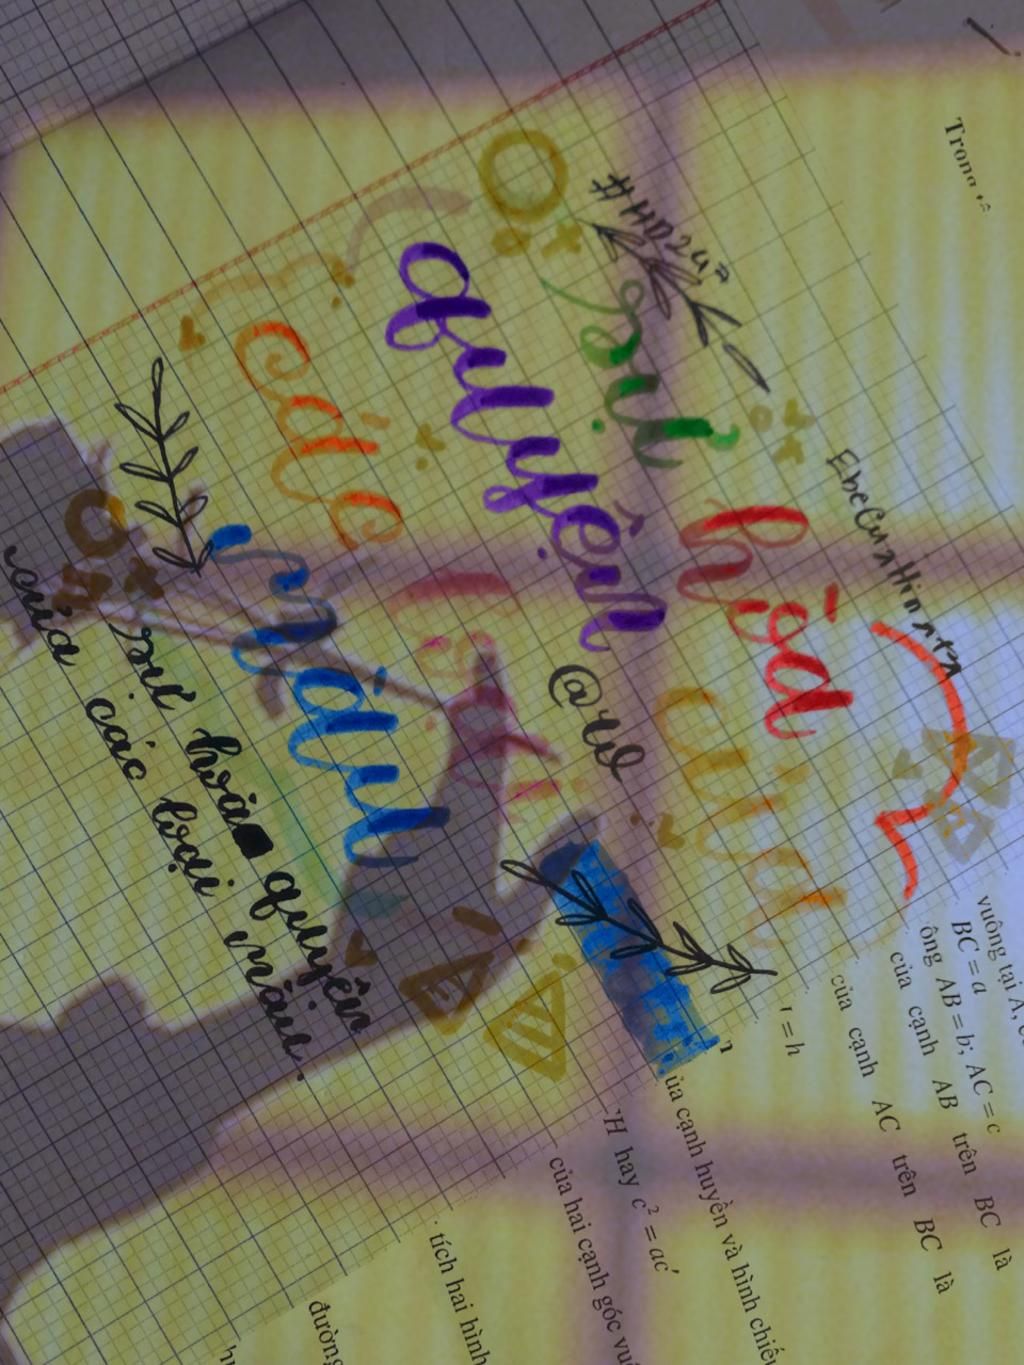 sự hòa
quyện
của
các
loại
màu
sự hòa quyện
của các loại màu.
Trong
vuông tại A, c
BC = a
ông AB = b; AC = c
của cạnh AB trên BC là
của cạnh AC trên BC là
= h
ủa cạnh huyền và hình chiếu
H hay c² = ac'
của hai cạnh góc vuô
tích hai hình
đường